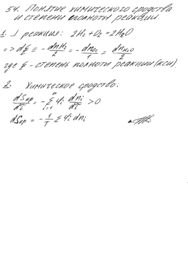 54. Понятие химического сродства
и степени полноты реакции.
1. ) реакция: 2H₂ + O₂ = 2H₂O
=> dξ = - dnH₂/2 = - dnO₂/1 = dnH₂O/2
где ξ - степень полноты реакции (кси)
2. Химическое сродство:
dSнр/dt = - 1/T Σ Ψi dni/dt > 0
dSнр = - 1/T Σ Ψi dni